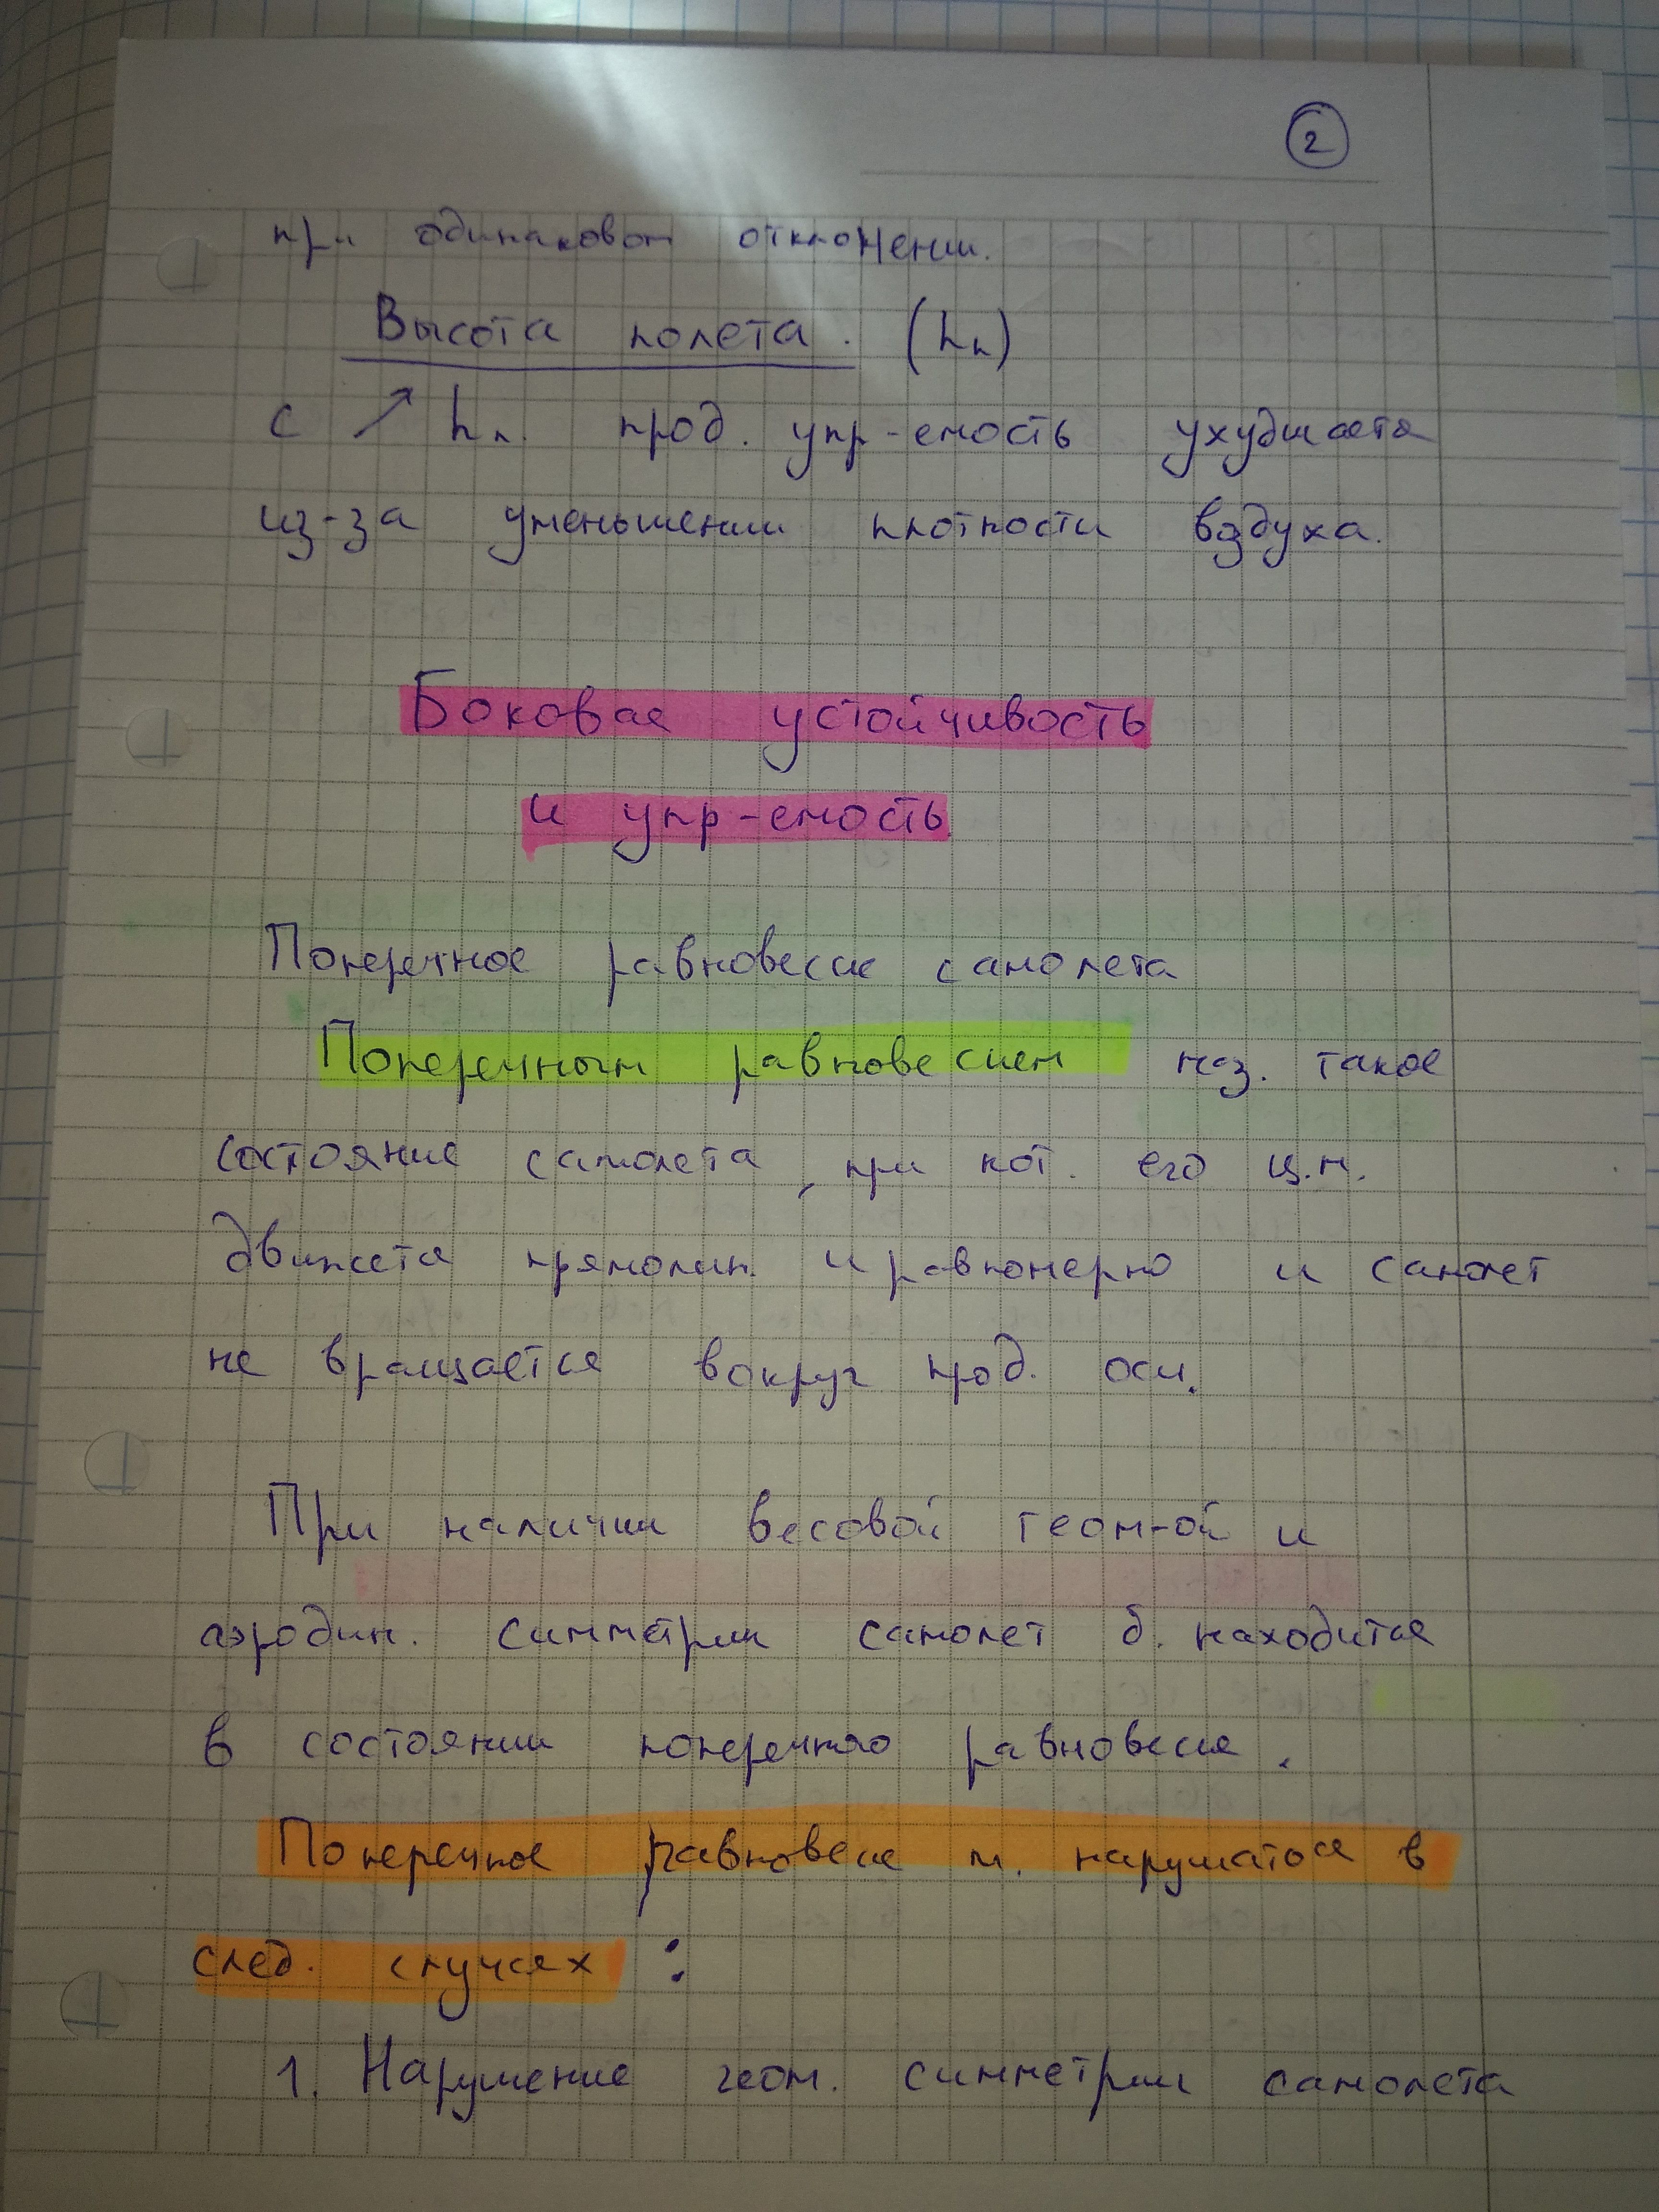 2
при одинаковом отклонении.
Высота полета. (hп)
с ↗ hп. прод. упр-емость ухудшается
из-за уменьшении плотности воздуха.
Боковая устойчивость
и упр-емость
Поперечное равновесие самолета
Поперечным равновесием наз. такое
состояние самолета, при кот. его ц.м.
движется прямолин. и равномерно и самолет
не вращается вокруг прод. оси.
При наличии весовой геом-ой и
аэродин. симметрии самолет б. находится
в состоянии поперечного равновесия.
Поперечное равновесие м. нарушатося в
след. случаях:
1. Нарушение геом. симметрии самолета